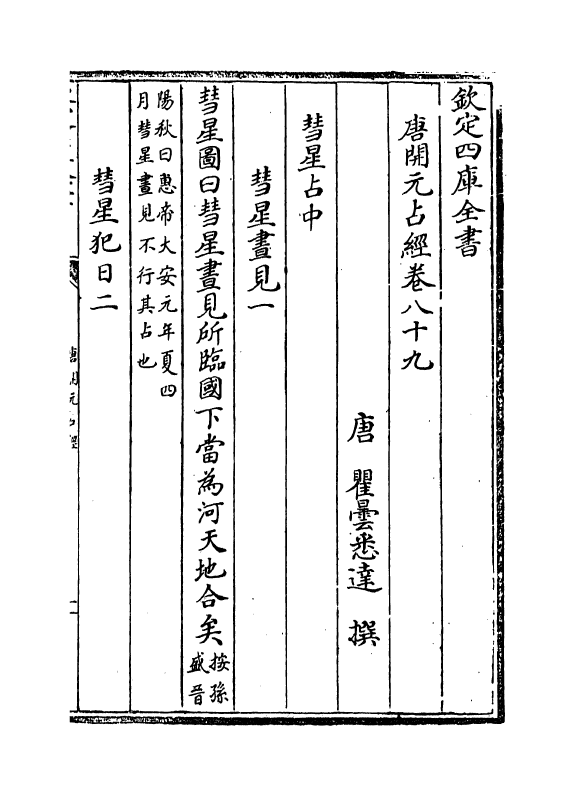 欽定四庫全書
唐開元占經卷八十九
唐 瞿曇悉達 撰
彗星占中
彗星晝見一
彗星圖曰彗星晝見所臨國下當為河天地合矣按孫盛晉
陽秋曰惠帝大安元年夏四
月彗星晝見不行其占也
彗星犯日二
唐開元占經
一